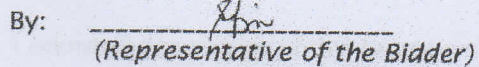 By:
(Representative of the Bidder)